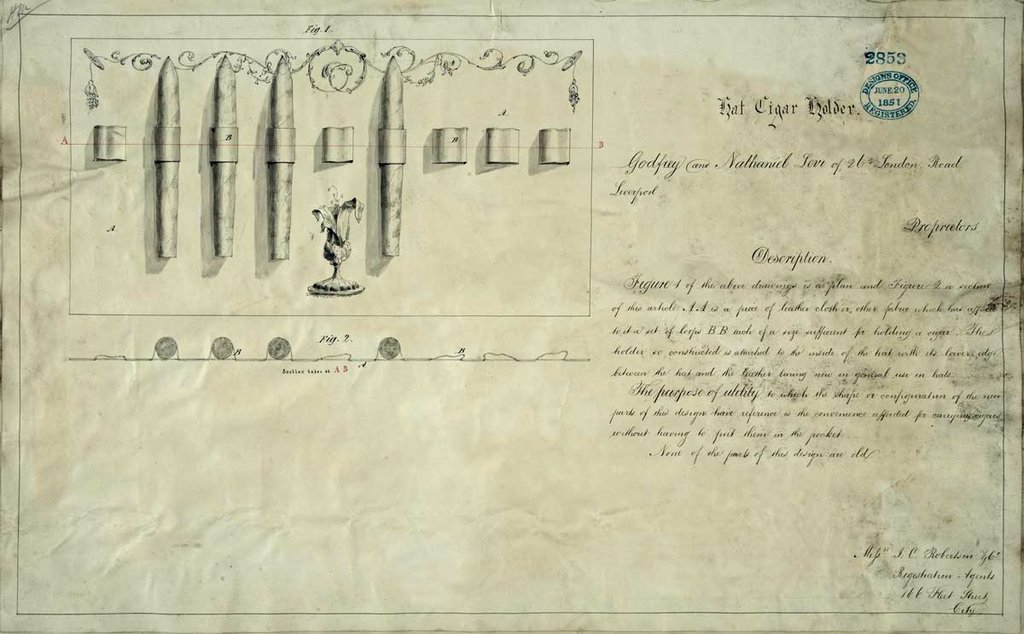 Fig. 1.
A
B
B
A
B
A
Fig. 2.
B
B
A
Section taken at A B
2853
DESIGNS OFFICE
JUNE 20
1851
REGISTERED
Hat Cigar Holder.
Godfrey and Nathaniel Levi of 26 London Road
Liverpool
Proprietors
Description.
Figure 1 of the above drawings is a plan and Figure 2 a section
of this article A A is a piece of leather cloth or other fabric which has affixed
to it a set of loops B B each of a size sufficient for holding a cigar. The
holder so constructed is attached to the inside of the hat with its lower edge
between the hat and the leather lining now in general use in hats.
The purpose of utility to which the shape or configuration of the new
parts of this design have reference is the convenience afforded for carrying cigars
without having to put them in the pocket.
None of the parts of this design are old
Messrs J. C. Robertson & Co
Registration Agents
166 Fleet Street
City